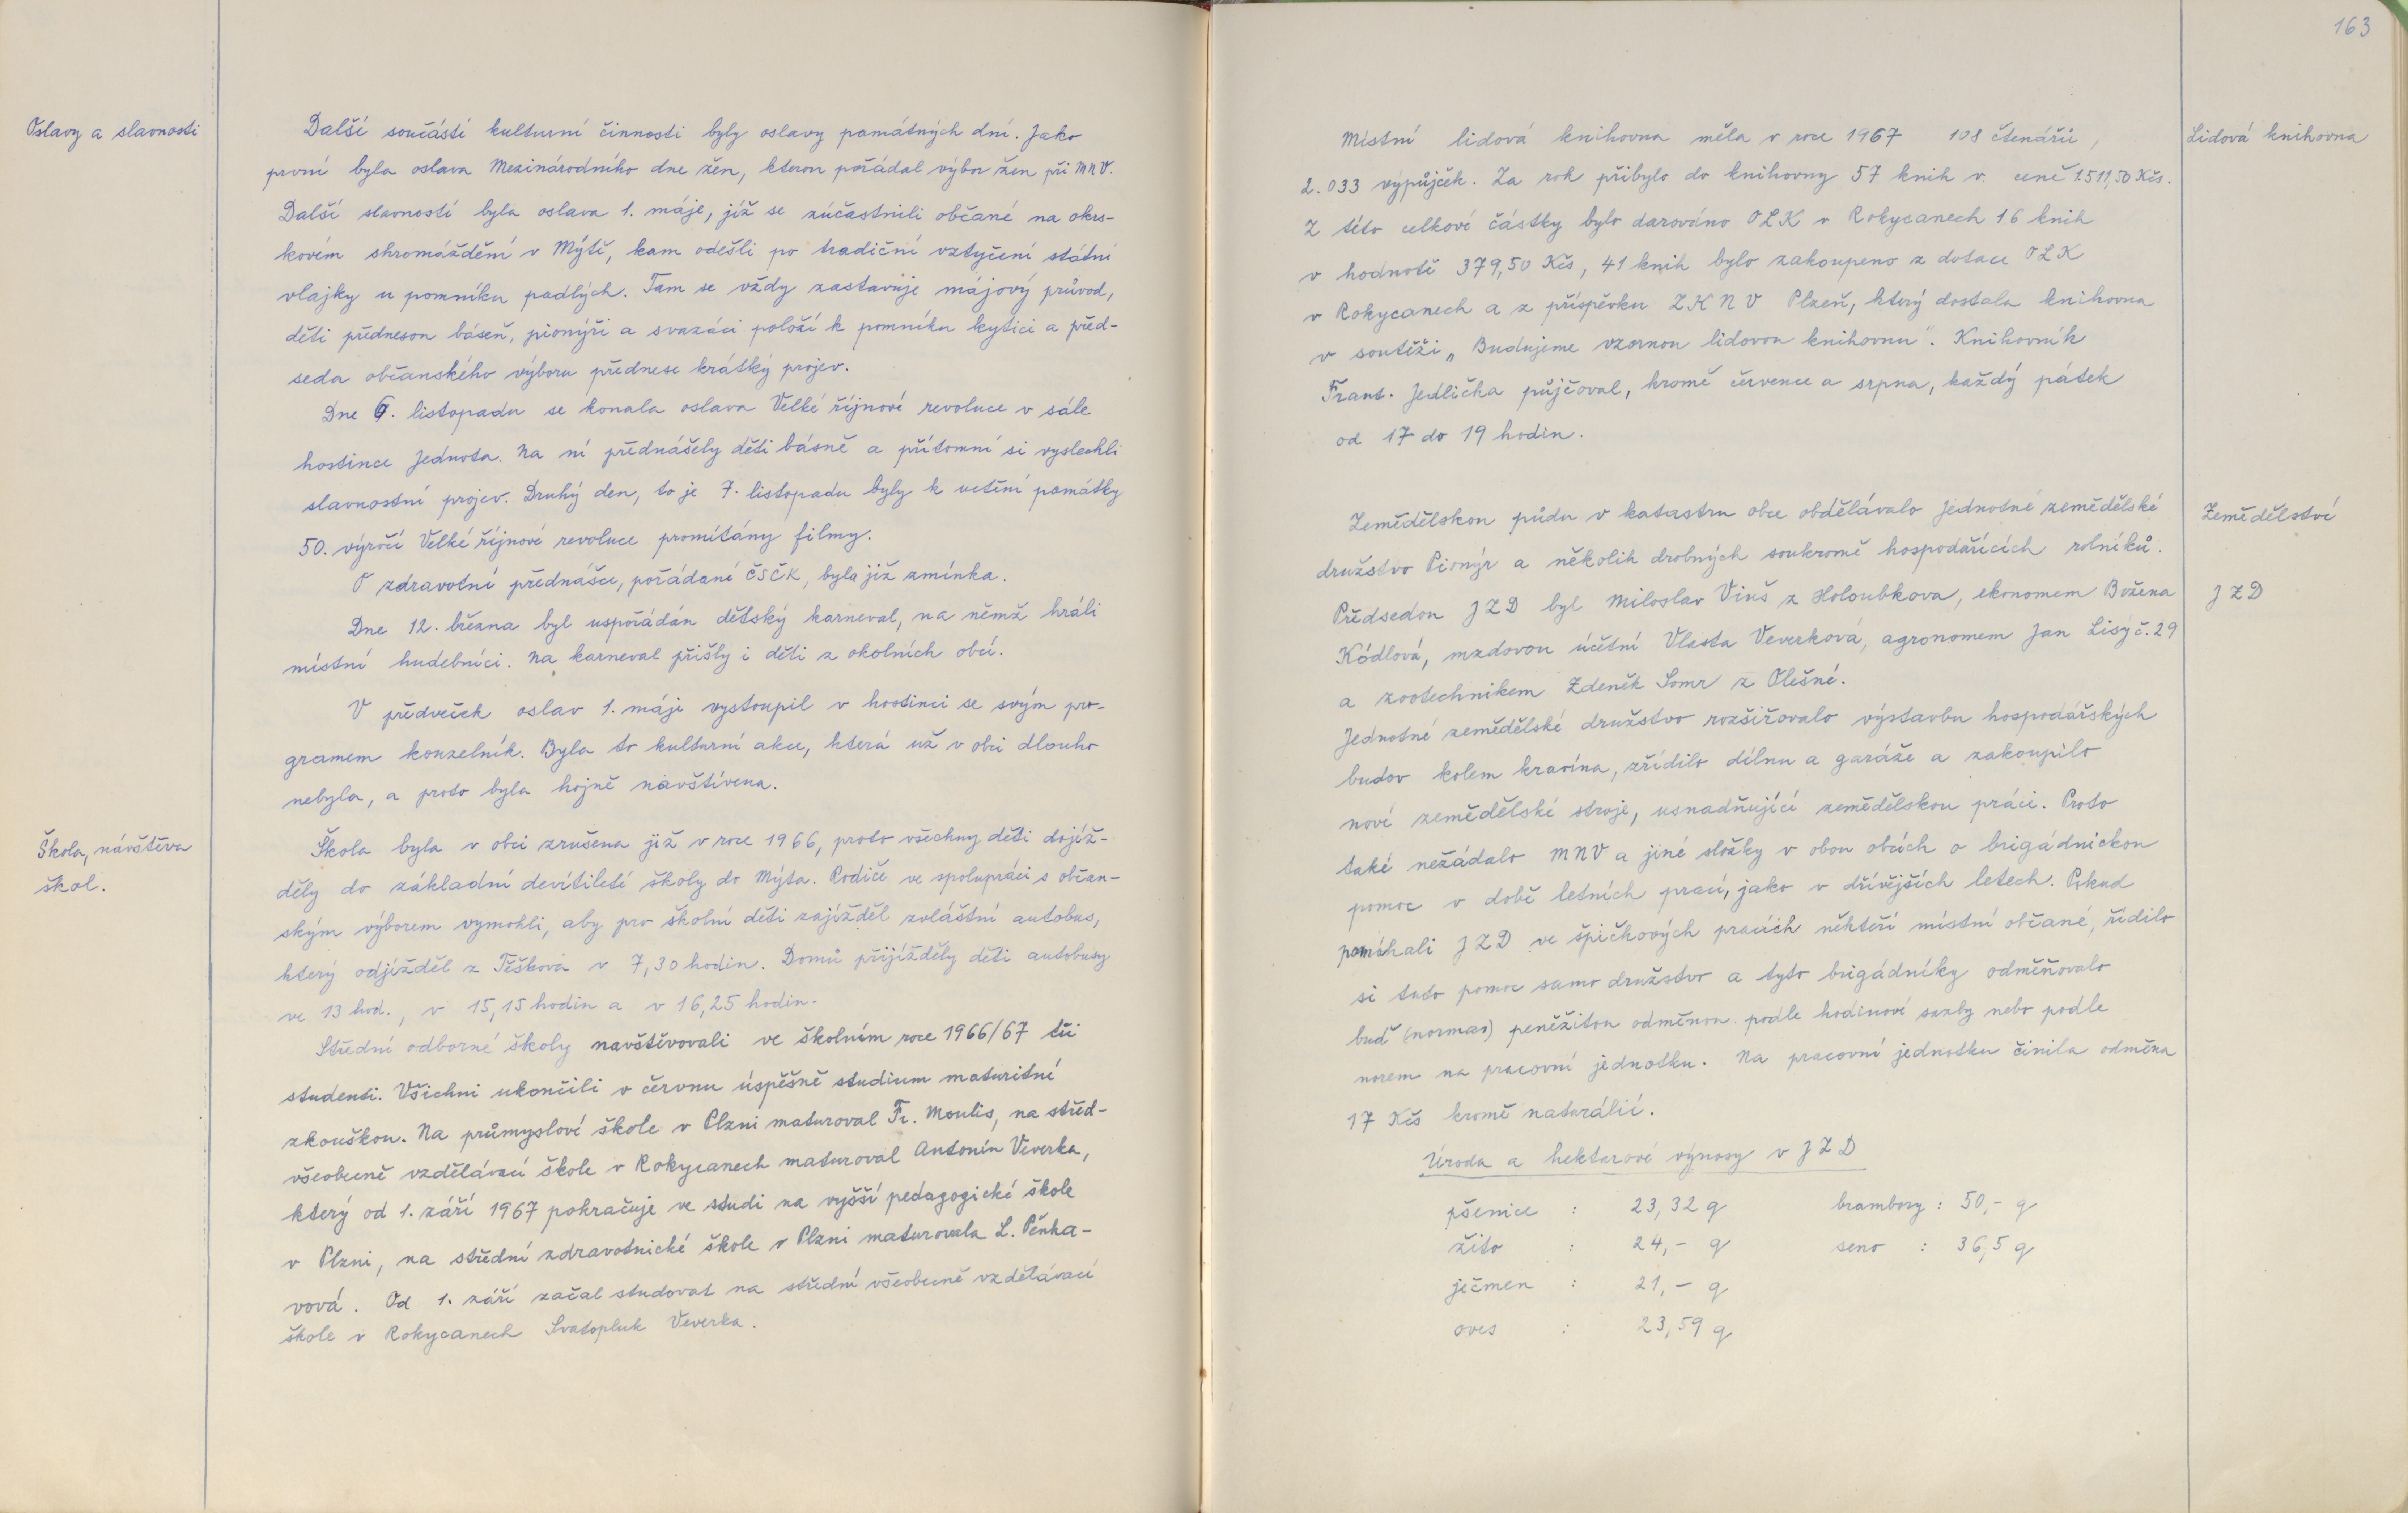 Oslavy a slavnosti
Další součástí kulturní činnosti byly oslavy památných dní. Jako
první byla oslava Mezinárodního dne žen, kterou pořádal výbor žen při MNV.
Další slavností byla oslava 1. máje, jíž se zúčastnili občané na okrs-
kovém shromáždění v Mýtě, kam odešli po tradiční vztyčení státní
vlajky u pomníku padlých. Tam se vždy zastavuje májový průvod,
děti přednesou báseň, pionýři a svazáci položí k pomníku kytici a před-
seda občanského výboru přednese krátký projev.
Dne 6. listopadu se konala oslava Velké říjnové revoluce v sále
hostince Jednota. Na ní přednášely děti básně a přítomní si vyslechli
slavnostní projev. Druhý den, to je 7. listopadu byly k uctění památky
50. výročí Velké říjnové revoluce promítány filmy.
O zdravotní přednášce, pořádané ČSČK, byla již zmínka.
Dne 12. března byl uspořádán dětský karneval, na němž hráli
místní hudebníci. Na karneval přišly i děti z okolních obcí.
V předvečer oslav 1. máje vystoupil v hostinci se svým pro-
gramem kouzelník. Byla to kulturní akce, která už v obci dlouho
nebyla, a proto byla hojně navštívena.
Škola, návštěva
škol.
Škola byla v obci zrušena již v roce 1966, proto všechny děti dojíž-
děly do základní devítileté školy do Mýta. Rodiče ve spolupráci s občan-
ským výborem vymohli, aby pro školní děti zajížděl zvláštní autobus,
který odjížděl z Těškova v 7,30 hodin. Domů přijížděly děti autobusy
ve 13 hod., v 15,15 hodin a v 16,25 hodin.
Střední odborné školy navštěvovali ve školním roce 1966/67 tři
studenti. Všichni ukončili v červnu úspěšně studium maturitní
zkouškou. Na průmyslové škole v Plzni maturoval Fr. Moulis, na střed-
všeobecně vzdělávací škole v Rokycanech maturoval Antonín Veverka,
který od 1. září 1967 pokračuje ve studi na vyšší pedagogické škole
v Plzni, na střední zdravotnické škole v Plzni maturovala L. Pěnka-
vová. Od 1. září začal studovat na střední všeobecně vzdělávací
škole v Rokycanech Svatopluk Veverka.
163
Lidová knihovna
Místní lidová knihovna měla v roce 1967 108 čtenářů,
2.033 výpůjček. Za rok přibylo do knihovny 57 knih v ceně 1.511,50 Kčs.
Z této celkové částky bylo darováno OLK v Rokycanech 16 knih
v hodnotě 379,50 Kčs, 41 knih bylo zakoupeno z dotace OLK
v Rokycanech a z příspěvku ZKNV Plzeň, který dostala knihovna
v soutěži „Budujeme vzornou lidovou knihovnu". Knihovník
Frant. Jedlička půjčoval, kromě července a srpna, každý pátek
od 17 do 19 hodin.
Zemědělství
Zemědělskou půdu v katastru obce obdělávalo Jednotné zemědělské
družstvo Pionýr a několik drobných soukromě hospodařících rolníků.
JZD
Předsedou JZD byl Miloslav Viuš z Holoubkova, ekonomem Božena
Kódlová, mzdovou účetní Vlasta Veverková, agronomem Jan Lisý č. 29
a zootechnikem Zdeněk Somr z Olešné.
Jednotné zemědělské družstvo rozšiřovalo výstavbu hospodářských
budov kolem kravína, zřídilo dílnu a garáže a zakoupilo
nové zemědělské stroje, usnadňující zemědělskou práci. Proto
také nežádalo MNV a jiné složky v obou obcích o brigádnickou
pomoc v době letních prací, jako v dřívějších letech. Pokud
pomíhali JZD ve špičkových pracích někteří místní občané, řídilo
si tuto pomoc samo družstvo a tyto brigádníky odměňovalo
buď (normao) peněžitou odměnou podle hodinové sazby nebo podle
norem na pracovní jednotku. Na pracovní jednotku činila odměna
17 Kčs kromě naturálií.
Úroda a hektarové výnosy v JZD
pšenice : 23,32 q brambory : 50,- q
žito : 24,- q seno : 36,5 q
ječmen : 21,- q
oves : 23,59 q